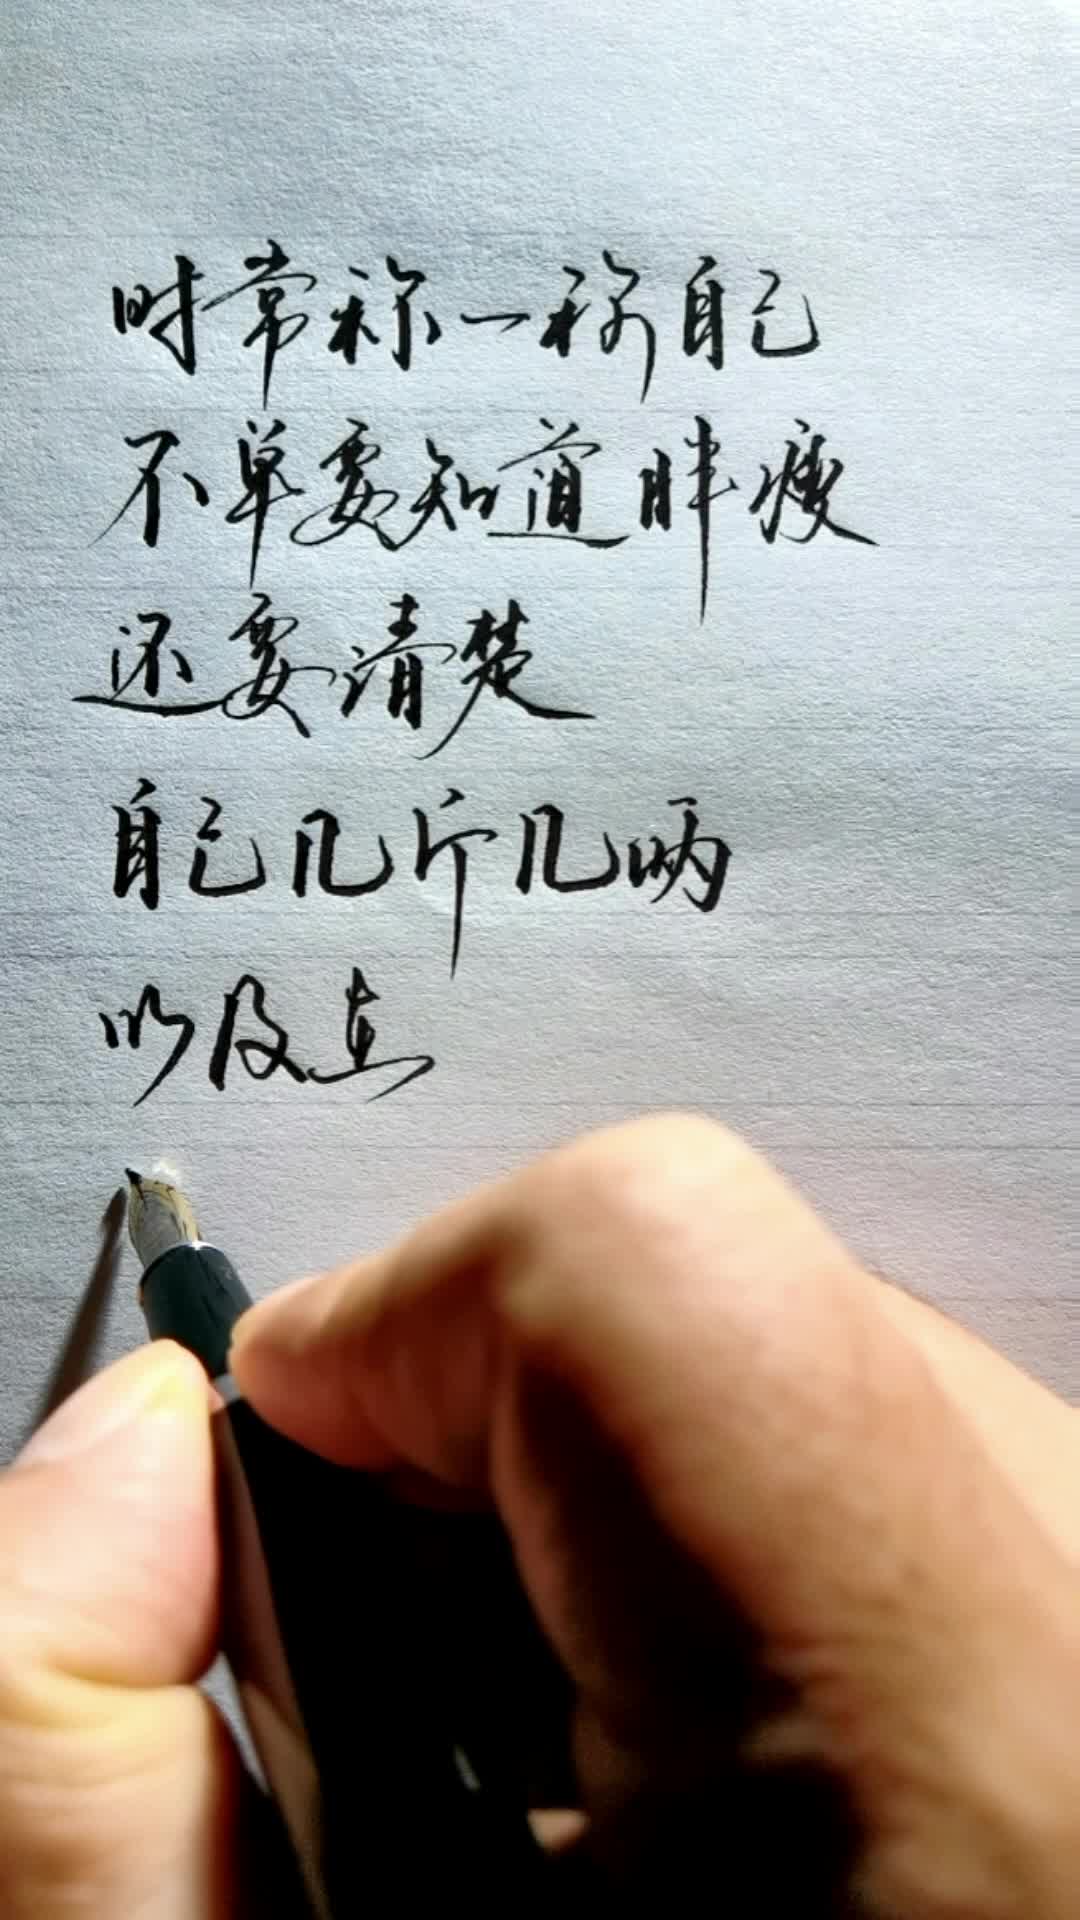 时常称一称自己
不单要知道胖瘦
还要清楚
自己几斤几两
以及在